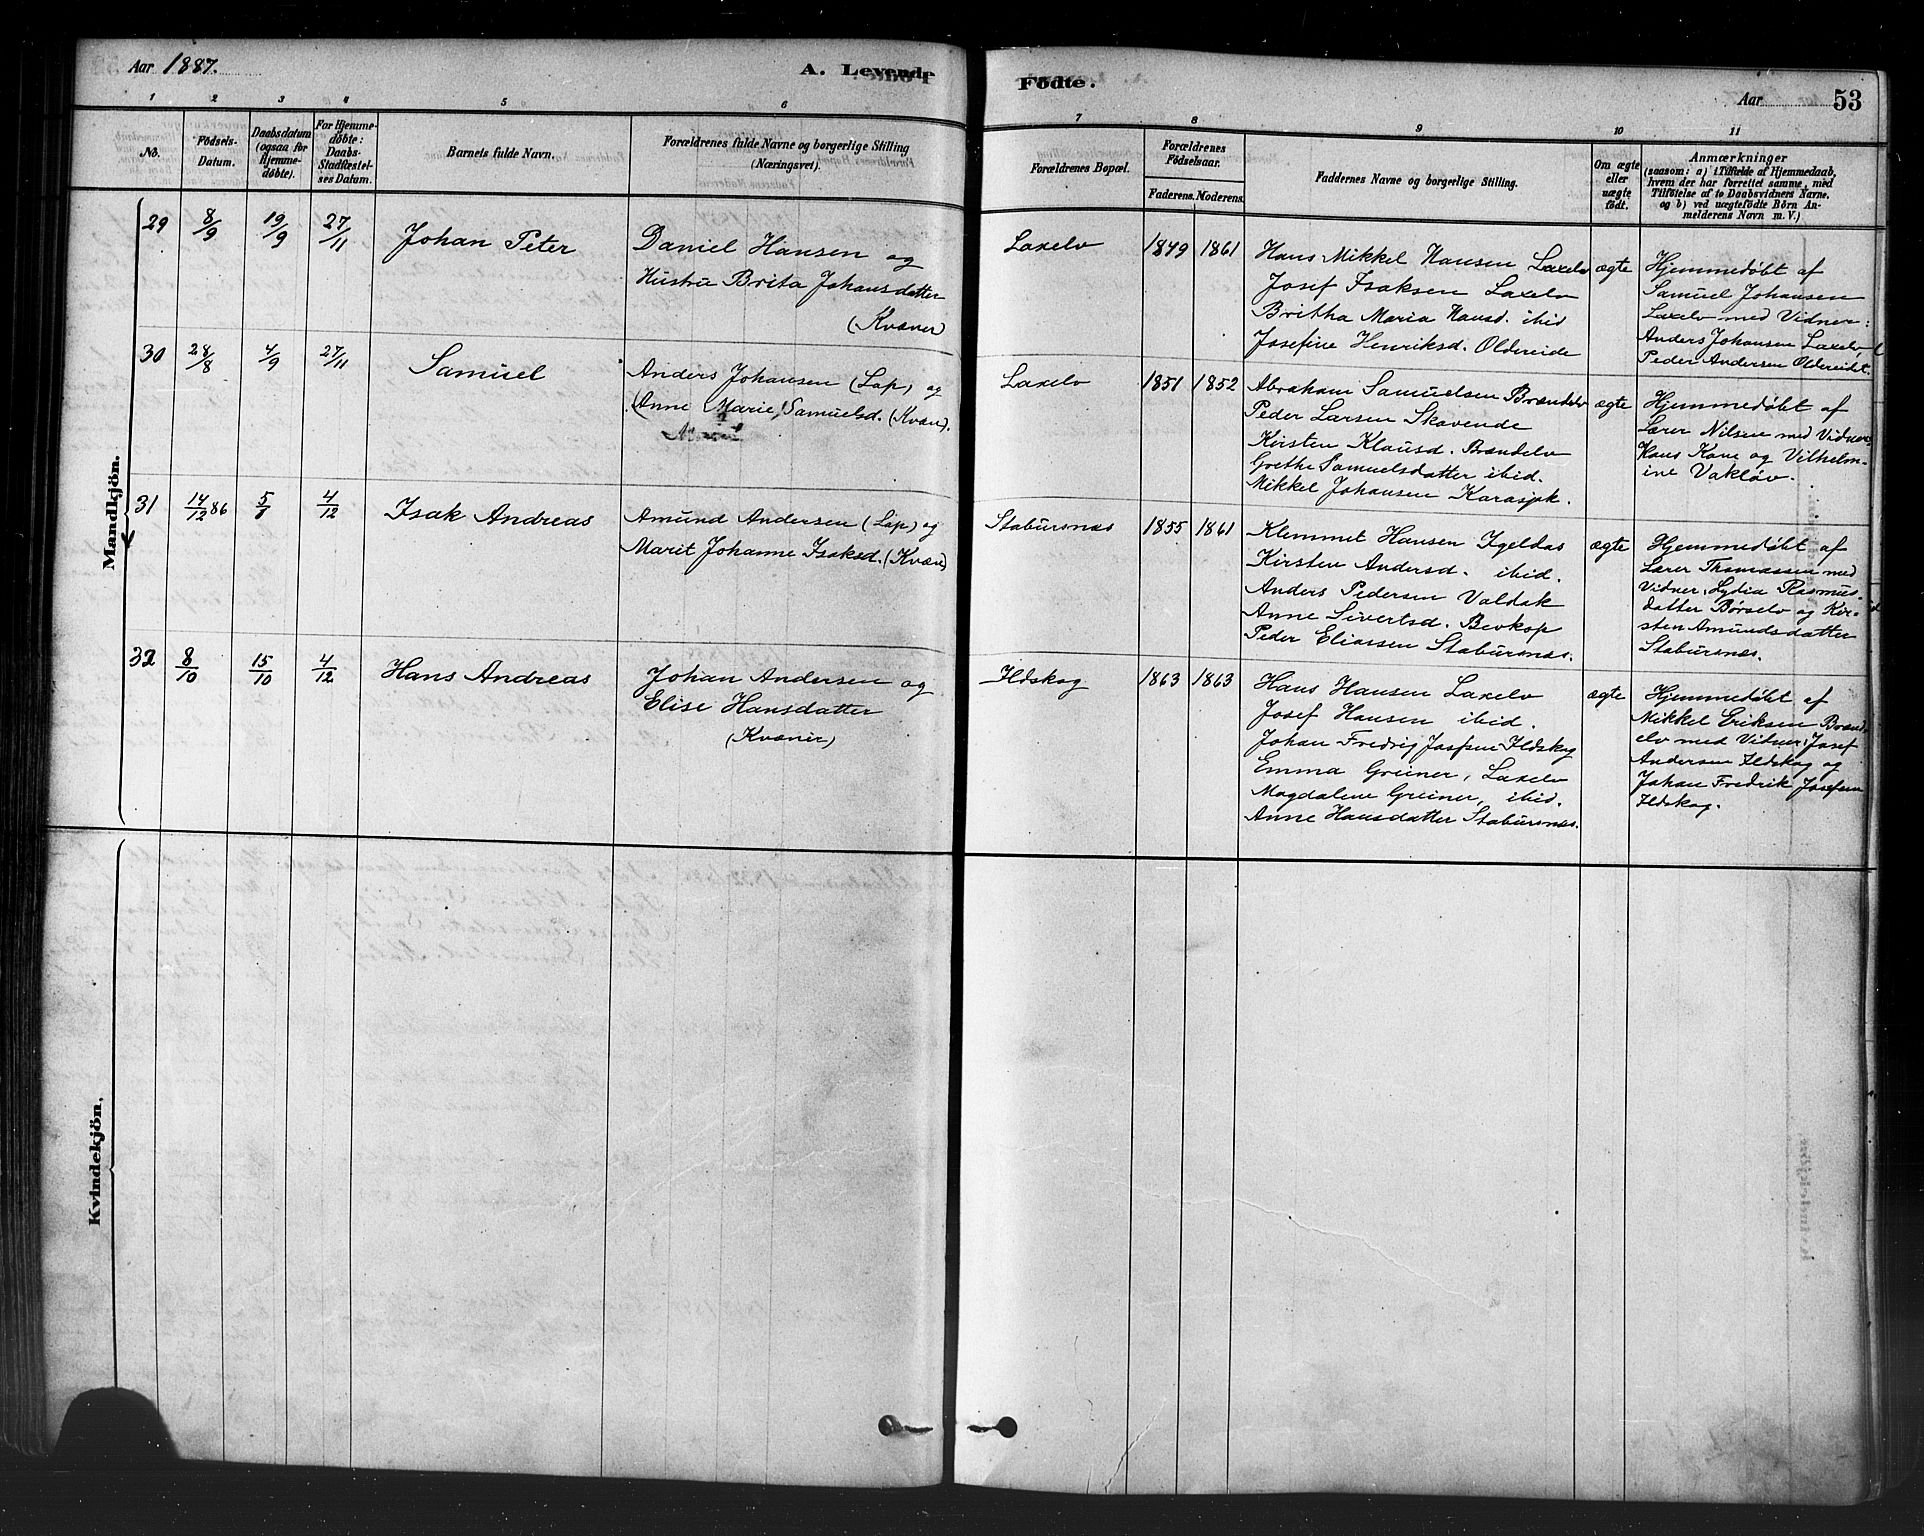 Aar 1887.
A. Levende
Födte.
Aar 53
1 2 3 4 5 6 7 8 9 10 11
No.
Födsels-
Datum.
Daabsdatum
(ogsaa for
Hjemme-
døbte).
For Hjemme-
døbte:
Daabs-
Stadfæstel-
ses Datum.
Barnets fulde Navn.
Forældrenes fulde Navne og borgerlige Stilling
(Næringsvei).
Forældrenes Bopæl.
Forældrenes
Födselsaar.
Faderens. Moderens.
Faddernes Navne og borgerlige Stilling.
Om ægte
eller
uægte
født.
Anmærkninger
(saasom: a) i Tilfælde af Hjemmedaab,
hvem der har forrettet samme, med
Tilføielse af to Daabsvidners Navne,
og b) ved uægtefødte Börn An-
melderens Navn m. V.)
Mandkjön.
29 8/9 19/9 27/11 Johan Peter
Daniel Hansen og
Hustru Brita Johansdatter
(Kvæner)
Laxelv 1849 1861
Hans Mikkel Hansen Laxelv
Josef Isaksen Laxelv
Britha Maria Hansd. ibid
Josefine Henriksd. Oldereide
ægte
Hjemmedøbt af
Samuel Johansen
Laxelv med Vidner:
Anders Johansen Laxelv
Peder Andersen Oldereidet.
30 28/8 4/9 27/11 Samuel
Anders Johansen (Lap) og
(Anne Marie) Samuelsd. (Kvæn).
Laxelv 1851 1852
Abraham Samuelsen Brændelv
Peder Larsen Skovende
Kirsten Klausd. Brændelv
Grethe Samuelsdatter ibid.
Mikkel Johansen Karasjok.
ægte
Hjemmedøbt af
Lærer Nilsen med Vidner
Hans Kone og Vilhelm-
ine Vakløv.
31 14/12 86 5/1 4/12 Isak Andreas
Amund Andersen (Lap) og
Marit Johanne Isaksd. (Kvæn)
Stabursnæs 1855 1861
Klemmet Hansen Igeldas
Kirsten Andersd. ibid.
Anders Pedersen Valdak
Anne Sivertsd. Bevkop
Peder Eliassen Stabursnæs.
ægte
Hjemmedøbt af
Lærer Thomassen med
Vidner: Lydia Rasmus-
datter Børselv og Kir-
sten Amundsdatter
Stabursnæs.
32 8/10 15/10 4/12 Hans Andreas
Johan Andersen og
Elise Hansdatter
(Kvæner)
Ildskog 1863 1863
Hans Hansen Laxelv
Josef Hansen ibid.
Johan Fredrig Josefsen Ildskog
Emma Greiner, Laxelv
Magdalene Greiner, ibid.
Anne Hansdatter Stabursnæs.
ægte
Hjemmedøbt af
Mikkel Eriksen Brænd-
elv med Vidner: Josef
Andersen Ildskog og
Johan Fredrik Josefsen
Ildskog.
Kvindekjön.